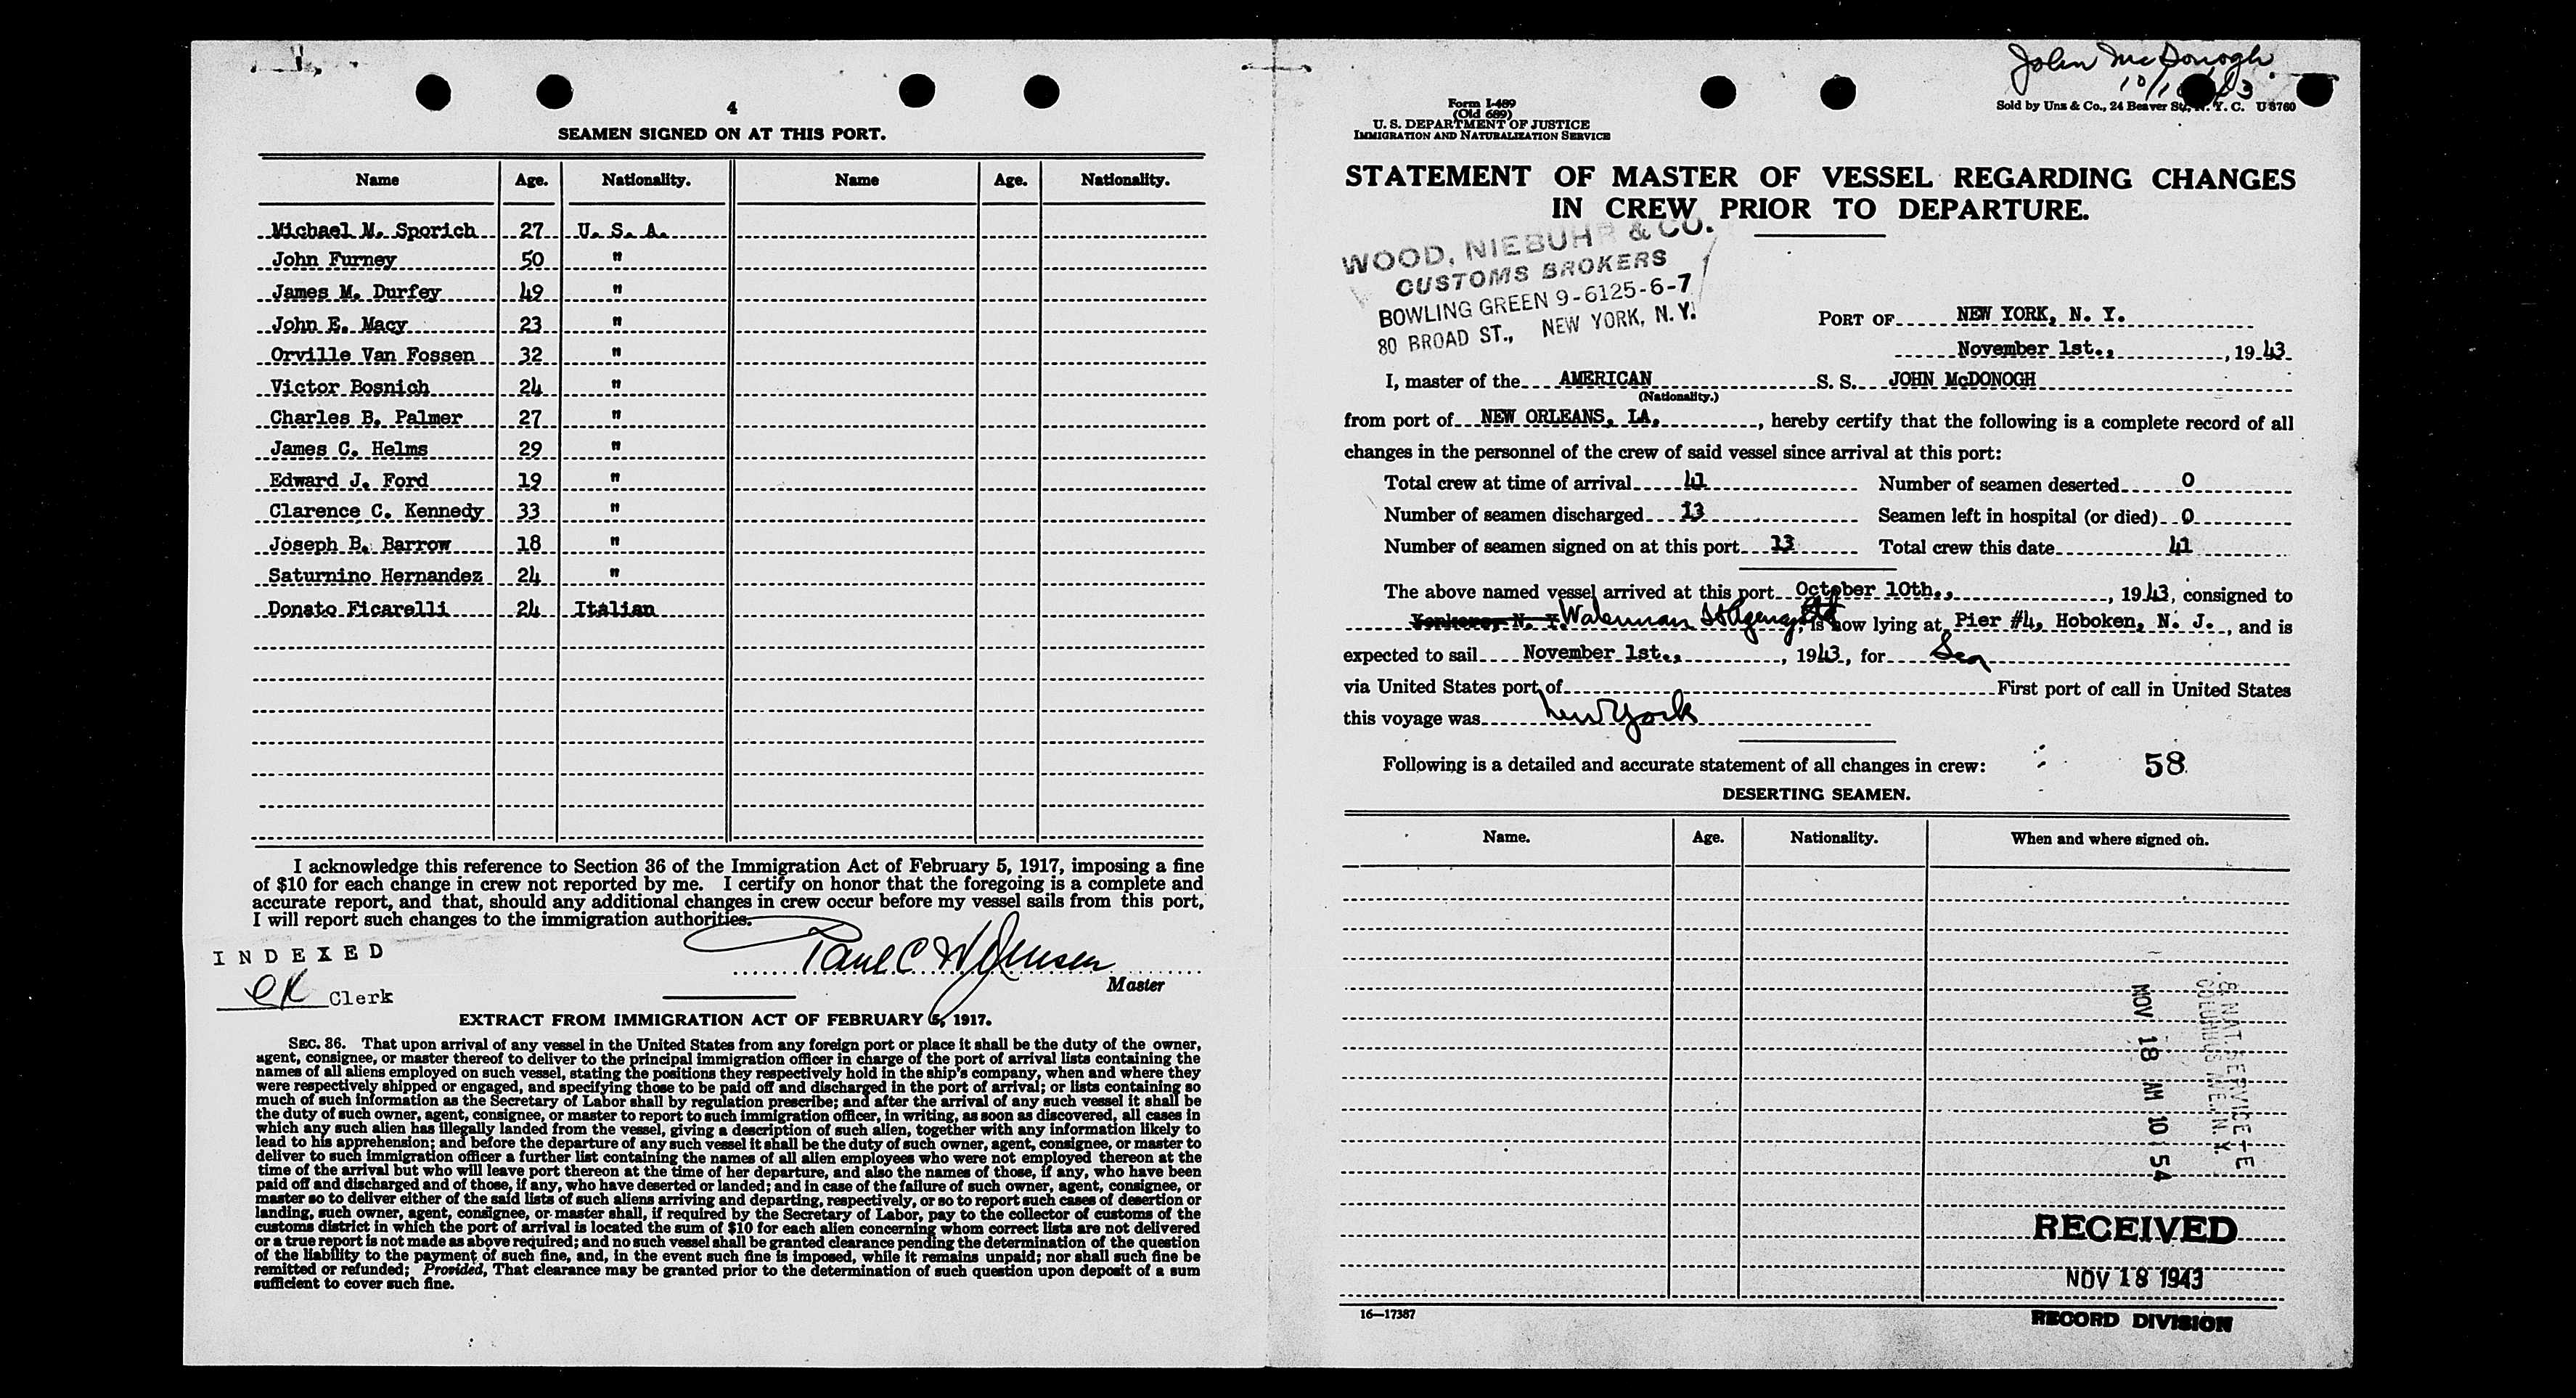 4
SEAMEN SIGNED ON AT THIS PORT.
Name Age. Nationality. Name Age. Nationality.
Michael M. Sporich 27 U. S. A.
John Furney 50 "
James M. Durfey 49 "
John E. Macy 23 "
Orville Van Fossen 32 "
Victor Bosnich 24 "
Charles B. Palmer 27 "
James C. Helms 29 "
Edward J. Ford 19 "
Clarence C. Kennedy 33 "
Joseph B. Barrow 18 "
Saturnino Hernandez 24 "
Donato Ficarelli 24 Italian
I acknowledge this reference to Section 36 of the Immigration Act of February 5, 1917, imposing a fine
of $10 for each change in crew not reported by me. I certify on honor that the foregoing is a complete and
accurate report, and that, should any additional changes in crew occur before my vessel sails from this port,
I will report such changes to the immigration authorities.
INDEXED
Clerk
Paul C
Master
EXTRACT FROM IMMIGRATION ACT OF FEBRUARY 5, 1917.
SEC. 36. That upon arrival of any vessel in the United States from any foreign port or place it shall be the duty of the owner,
agent, consignee, or master thereof to deliver to the principal immigration officer in charge of the port of arrival lists containing the
names of all aliens employed on such vessel, stating the positions they respectively hold in the ship's company, when and where they
were respectively shipped or engaged, and specifying those to be paid off and discharged in the port of arrival; or lists containing so
much of such information as the Secretary of Labor shall by regulation prescribe; and after the arrival of any such vessel it shall be
the duty of such owner, agent, consignee, or master to report to such immigration officer, in writing, as soon as discovered, all cases in
which any such alien has illegally landed from the vessel, giving a description of such alien, together with any information likely to
lead to his apprehension; and before the departure of any such vessel it shall be the duty of such owner, agent, consignee, or master to
deliver to such immigration officer a further list containing the names of all alien employees who were not employed thereon at the
time of the arrival but who will leave port thereon at the time of her departure, and also the names of those, if any, who have been
paid off and discharged and of those, if any, who have deserted or landed; and in case of the failure of such owner, agent, consignee, or
master so to deliver either of the said lists of such aliens arriving and departing, respectively, or so to report such cases of desertion or
landing, such owner, agent, consignee, or master shall, if required by the Secretary of Labor, pay to the collector of customs of the
customs district in which the port of arrival is located the sum of $10 for each alien concerning whom correct lists are not delivered
or a true report is not made as above required; and no such vessel shall be granted clearance pending the determination of the question
of the liability to the payment of such fine, and, in the event such fine is imposed, while it remains unpaid; nor shall such fine be
remitted or refunded; Provided, That clearance may be granted prior to the determination of such question upon deposit of a sum
sufficient to cover such fine.
John McDonogh
Form I-489
(Old 689)
U. S. DEPARTMENT OF JUSTICE
IMMIGRATION AND NATURALIZATION SERVICE
Sold by Unz & Co., 24 Beaver St., N. Y. C. U 8760
STATEMENT OF MASTER OF VESSEL REGARDING CHANGES
IN CREW PRIOR TO DEPARTURE.
WOOD, NIEBUHR & CO.
CUSTOMS BROKERS
BOWLING GREEN 9-6125-6-7
80 BROAD ST., NEW YORK, N.Y.
PORT OF NEW YORK, N. Y.
November 1st., , 1943
I, master of the AMERICAN S. S. JOHN McDONOGH
(Nationality.)
from port of NEW ORLEANS, LA. , hereby certify that the following is a complete record of all
changes in the personnel of the crew of said vessel since arrival at this port:
Total crew at time of arrival 41 Number of seamen deserted 0
Number of seamen discharged 13 Seamen left in hospital (or died) 0
Number of seamen signed on at this port 13 Total crew this date 41
The above named vessel arrived at this port October 10th., , 1943, consigned to
Yonkers, N. Y. Waterman SS Agency Ltd , is now lying at Pier #4, Hoboken, N. J. , and is
expected to sail November 1st., , 1943, for Sea
via United States port of First port of call in United States
this voyage was New York
Following is a detailed and accurate statement of all changes in crew: 58
DESERTING SEAMEN.
Name. Age. Nationality. When and where signed on.
NOV 18 AM 10 54
COLUMBUS AVE. N.Y.
RECEIVED
NOV 18 1943
RECORD DIVISION
16—17387